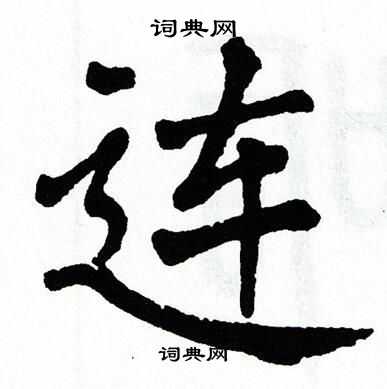 词典网
连
词典网